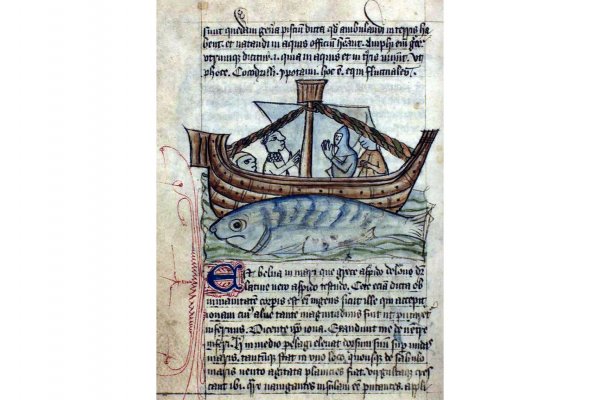 sunt quedam gen̄a pisciū dicta qd̄ ambulandi in terris ha
bent. et natandi in aquis officiū hēant. Amphi em̄ grece
utrumque dicitur .i. quia in aquis et in tr̄is uiuūt. vt
phoce. Cocodrilli. ypotami. hoc ē. equi fluctuales.
Est belua in mari que grece aspido delone dr̄
latine uero aspido testudo. Cete eciā dicta ob
inmanitatem corpis est em̄ ingens sicut ille qui accepit
ionam cuiꝰ aluꝰ tante magnitudinis fuit ut putaret
infernus. Dicente ip̄o iona. Exaudiuit me de uentre
inferi. in medio pelagi eleuat dorsum suū sup undas
maris. tantūque stat in uno loco. quousque de sabulo
maris uento agitata planicies fiat. virgultaque cres
cant ibi. nauigantes insulam eē putantes. apli